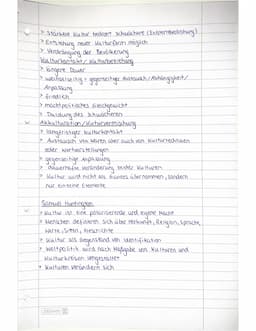 > Stärkere Kultur bedroht schwächere (Existenzbedrohung)
> Entstehung neuer Kulturform möglich
> Verdrängung der Bevölkerung
Kulturkontakt/Kulturbeziehung
> längere Dauer
> wechselseitig = gegenseitiger Austausch/Abhängigkeit/
Anpassung
> friedlich
> machtpolitisches Gleichgewicht
> Duldung des Schwächeren
Akkulturation/Kulturverflechtung
> langfristiger Kulturkontakt
> Austausch von Waren aber auch von Kulturtechniken
oder Wertvorstellungen
> gegenseitige Anpassung
> dauerhafte Veränderung beider Kulturen
> Kultur wird nicht als Ganzes übernommen, sondern
nur einzelne Elemente
Samuel Huntington
> Kultur ist eine polarisierende und eigene Macht
> Menschen definieren sich über Herkunft, Religion, Sprache,
Werte, Sitten, Geschichte
> Kultur als Gegenstand von Identifikation
> Weltpolitik wird nach Maßgabe von Kulturen und
Kulturkreisen umgestaltet
> Kulturen verändern sich